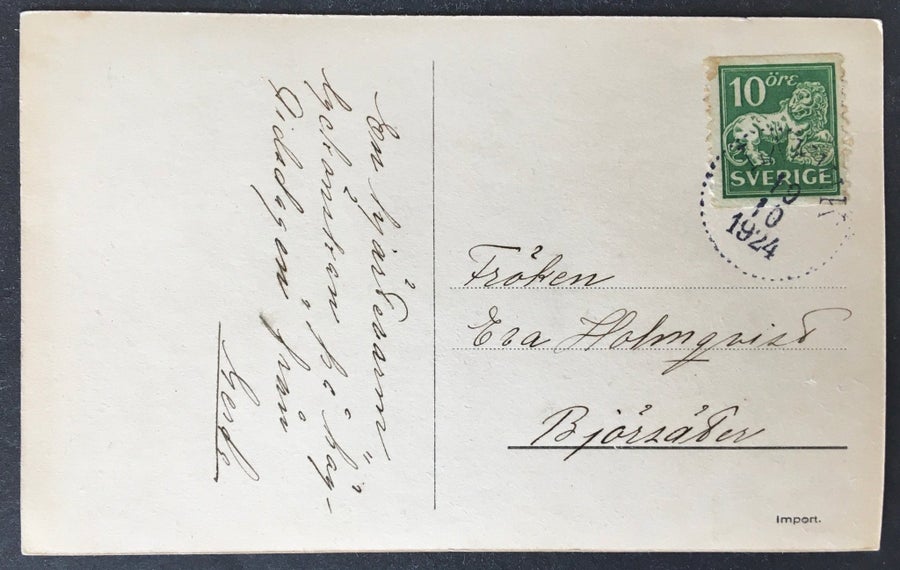 En hjärtevarm
lyckönskan på hög-
tidsdagen från
Gerda
10 öre
SVERIGE
19
10
1924
Fröken
Eva Holmqvist
Björsäter
Import.